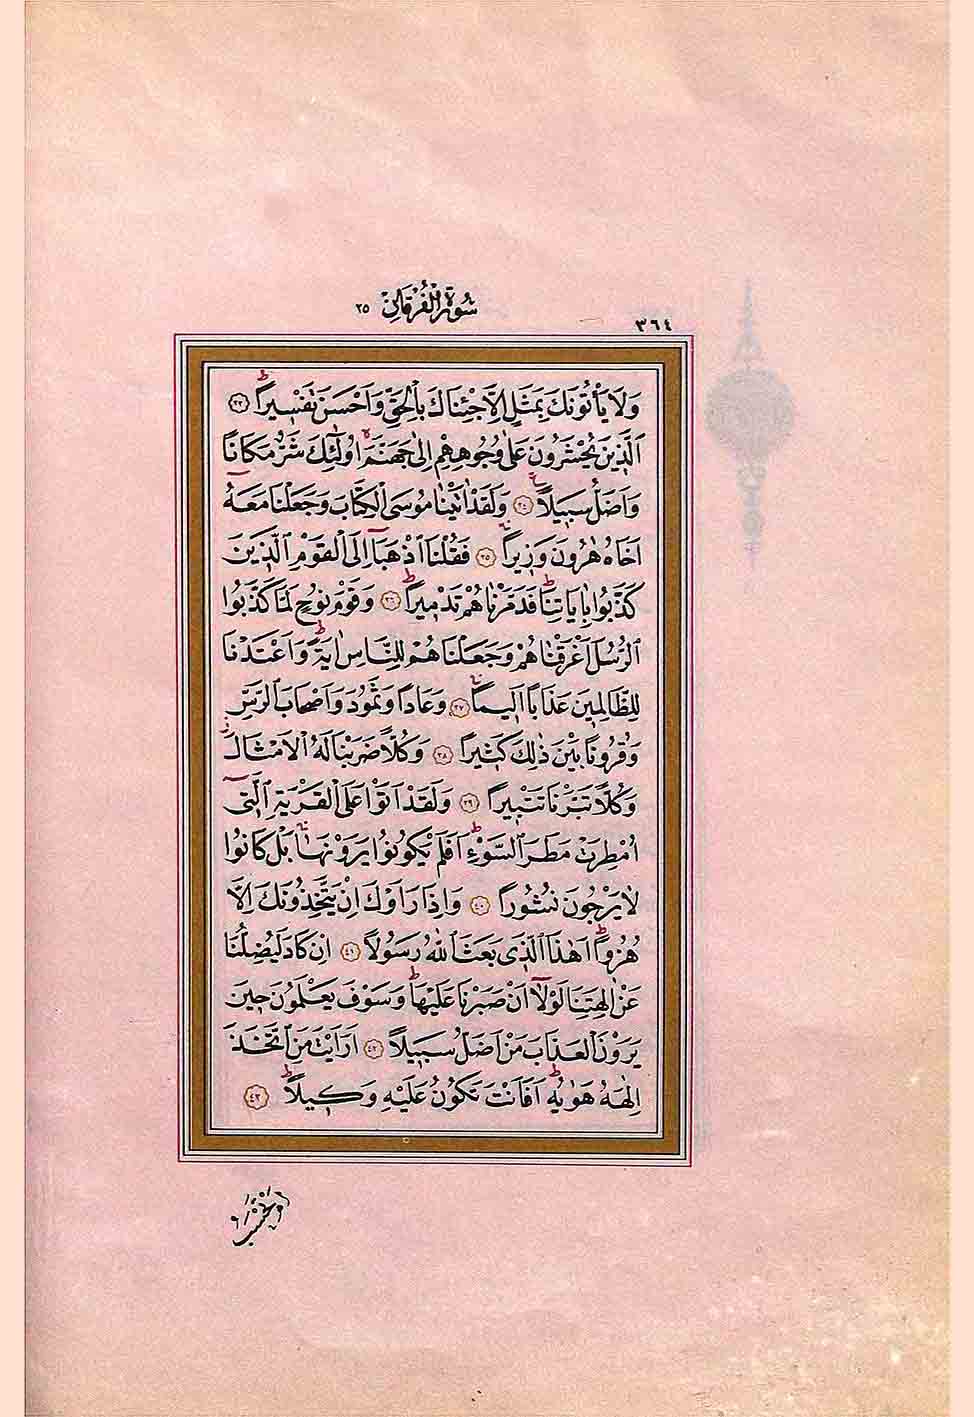 سُورَةُ الْفُرْقَانِ ٢٥
٣٦٤
وَلَا يَأْتُونَكَ بِمَثَلٍ اِلَّا جِئْنَاكَ بِالْحَقِّ وَاَحْسَنَ تَفْسٖيراًؕ ﴿٣٣﴾
اَلَّذٖينَ يُحْشَرُونَ عَلٰى وُجُوهِهِمْ اِلٰى جَهَنَّمَۙ اُو۬لٰٓئِكَ شَرٌّ مَكَاناً
وَاَضَلُّ سَبٖيلاًࣖ ﴿٣٤﴾ وَلَقَدْ اٰتَيْنَا مُوسَى الْكِتَابَ وَجَعَلْنَا مَعَهُٓ
اَخَاهُ هٰرُونَ وَزٖيراًۚ ﴿٣٥﴾ فَقُلْنَا اذْهَبَٓا اِلَى الْقَوْمِ الَّذٖينَ
كَذَّبُوا بِاٰيَاتِنَاؕ فَدَمَّرْنَاهُمْ تَدْمٖيراًؕ ﴿٣٦﴾ وَقَوْمَ نُوحٍ لَمَّا كَذَّبُوا
الرُّسُلَ اَغْرَقْنَاهُمْ وَجَعَلْنَاهُمْ لِلنَّاسِ اٰيَةًؕ وَاَعْتَدْنَا
لِلظَّالِمٖينَ عَذَاباً اَلٖيماًۚ ﴿٣٧﴾ وَعَاداً وَثَمُودَ وَاَصْحَابَ الرَّسِّ
وَقُرُوناً بَيْنَ ذٰلِكَ كَثٖيراً ﴿٣٨﴾ وَكُلّاً ضَرَبْنَا لَهُ الْاَمْثَالَۘ
وَكُلّاً تَبَّرْنَا تَتْبٖيراً ﴿٣٩﴾ وَلَقَدْ اَتَوْا عَلَى الْقَرْيَةِ الَّتٖٓى
اُمْطِرَتْ مَطَرَ السَّوْءِؕ اَفَلَمْ يَكُونُوا يَرَوْنَهَاۚ بَلْ كَانُوا
لَا يَرْجُونَ نُشُوراً ﴿٤٠﴾ وَاِذَا رَاَوْكَ اِنْ يَتَّخِذُونَكَ اِلَّا
هُزُواًؕ اَهٰذَا الَّذٖى بَعَثَ اللّٰهُ رَسُولاً ﴿٤١﴾ اِنْ كَادَ لَيُضِلُّنَا
عَنْ اٰلِهَتِنَا لَوْلَٓا اَنْ صَبَرْنَا عَلَيْهَاؕ وَسَوْفَ يَعْلَمُونَ حٖينَ
يَرَوْنَ الْعَذَابَ مَنْ اَضَلُّ سَبٖيلاً ﴿٤٢﴾ اَرَاَيْتَ مَنِ اتَّخَذَ
اِلٰهَهُ هَوٰيهُؕ اَفَاَنْتَ تَكُونُ عَلَيْهِ وَكٖيلاًۙ ﴿٤٣﴾
اَمْ تَحْسَبُ